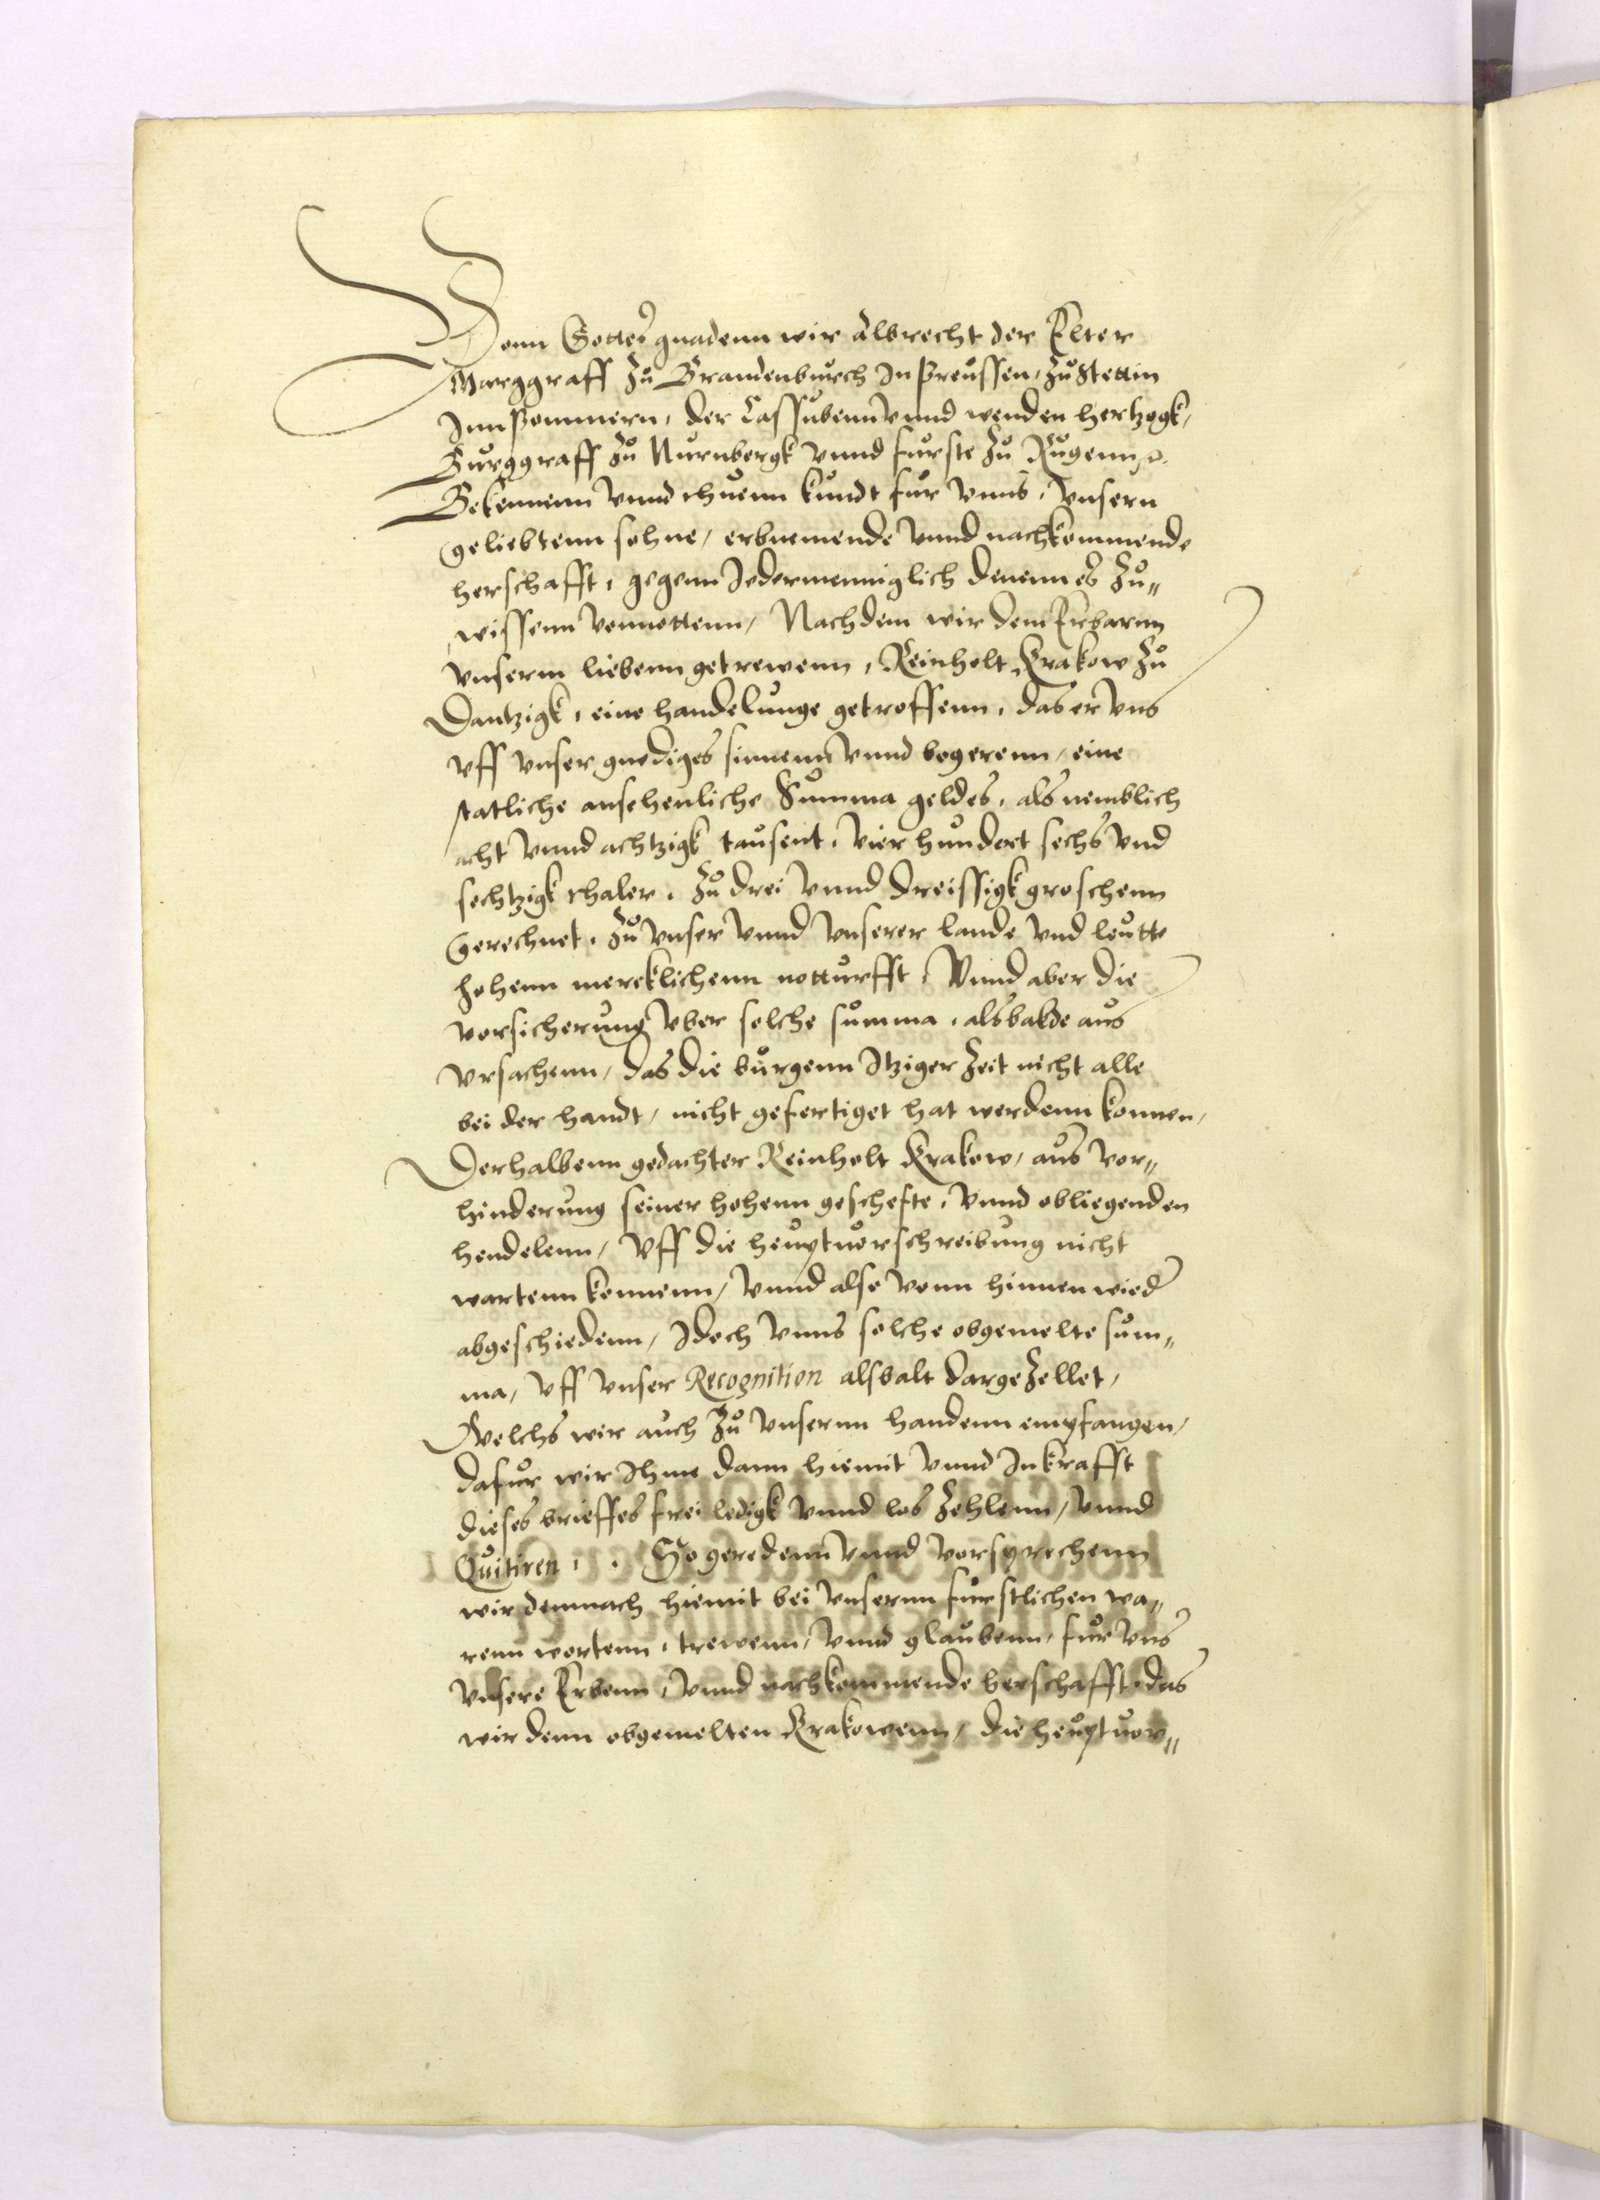 Vonn Gottes gnadenn wir Albrecht der Elter
Marggraff zu Brandenburch In Preussen, zu Stettin
Inn Pommern, der Cassubenn vnnd wenden hertzogk,
Burggraff zu Nurnbergk vnnd furste zu Rugenn ꝛc.
Bekennenn vnnd thuenn kundt fur vnns, vnsern
geliebtenn sohne, erbnemende vnnd nachkommende
herschafft, gegenn Jedermenniglich denenn es zu„
wissenn vonnottenn, Nachdem wir dem Erbarnn
vnserm liebenn getrewenn, Reinholt Krakow zu
Dantzigk, eine handelunge getroffenn, das er vns
vff vnser gnediges sinnenn vnnd begerenn, eine
statliche ansehenliche Summa geldes, als nemblich
acht vnnd achtzigk tausent, vier hundert sechs vnd
sechtzigk thaler, zu drei vnnd dreissigk groschenn
gerechnet, zu vnser vnnd vnserer lande vnd leutte
hohenn mercklichenn notturfft, Vnnd aber die
vorsicherung vber solche summa, alsbalde aus
vrsachenn, das die burgenn Itziger zeit nicht alle
bei der handt, nicht gefertiget hat werdenn konnen,
Derhalbenn gedachter Reinholt Krakow, aus vor„
hinderung seiner hohenn geschefte, vnnd obliegenden
hendelenn, vff die heuptuorschreibung nicht
wartenn konnenn, vnnd also vonn hinnen wieder
abgeschiedenn, Idoch vnns solche obgemelte sum„
ma, vff vnser Recognition alsbalt dargezellet,
Welchs wir auch zu vnsernn handenn empfangen,
dafur wir Ihme dann hiemit vnnd In krafft
dieses brieffes frei ledigk vnnd los zehlenn, vnnd
Quitiren, . So geredenn vnnd vorsprechenn
wir demnach hiemit bei vnsernn furstlichen wa„
renn wortenn, trewenn, vnnd glaubenn, fur vns
vnsere Erbenn, vnnd nachkommende herschafft, das
wir denn obgemelten Krakowenn, die heuptuor„